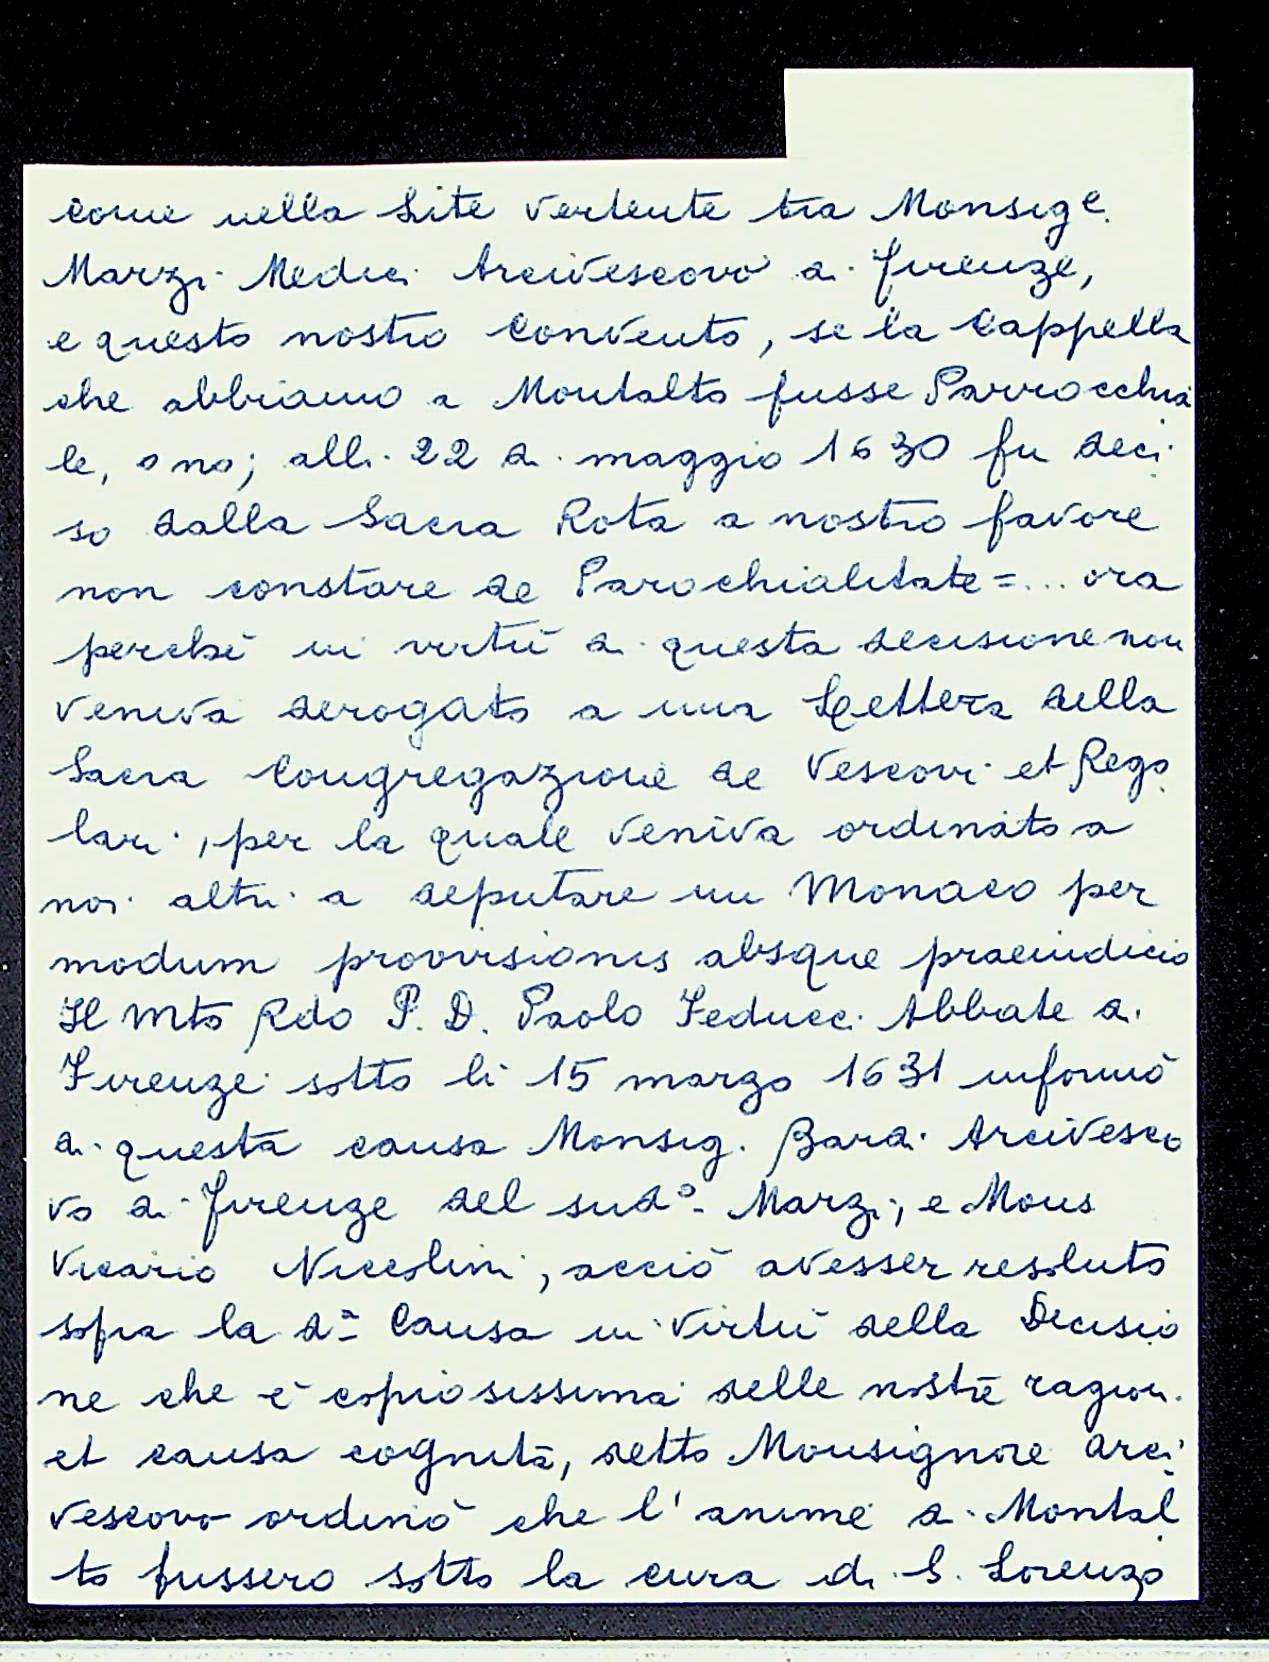 come nella Lite vertente tra Monsig.e
Marzi Medici Arcivescovo di Firenze,
e questo nostro Convento, se la Cappella
che abbiamo a Montalto fusse Parrocchia
le, o no; alli 22 di maggio 1630 fu deci
so dalla Sacra Rota a nostro favore
non constare de Parochialitate = ... ora
perchè in virtù di questa decisione non
veniva derogato a una Lettera della
Sacra Congregazione de Vescovi et Rego
lari, per la quale veniva ordinato a
noi altri a deputare un Monaco per
modum provvisionis absque praeiudicio
Il Mto Rdo P. D. Paolo Feducci Abbate di
Firenze sotto li 15 marzo 1631 informò
di questa causa Monsig. Bardi Arcivesco
vo di Firenze del sud.o Marzi, e Mons
Vicario Niccolini, acciò avesser resoluto
sopra la d.a Causa in virtù della Decisio
ne che è copiosissima delle nostre ragioni
et causa cognita, detto Monsignore Arci
vescovo ordinò che l'anime di Montal
to fussero sotto la cura di S. Lorenzo